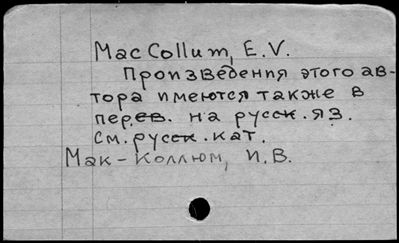 Mac Collum, E.V.
Произведения этого ав-
тора имеются также в
перев. на русск. яз.
См. русск. кат.
Мак-Коллюм, И.В.